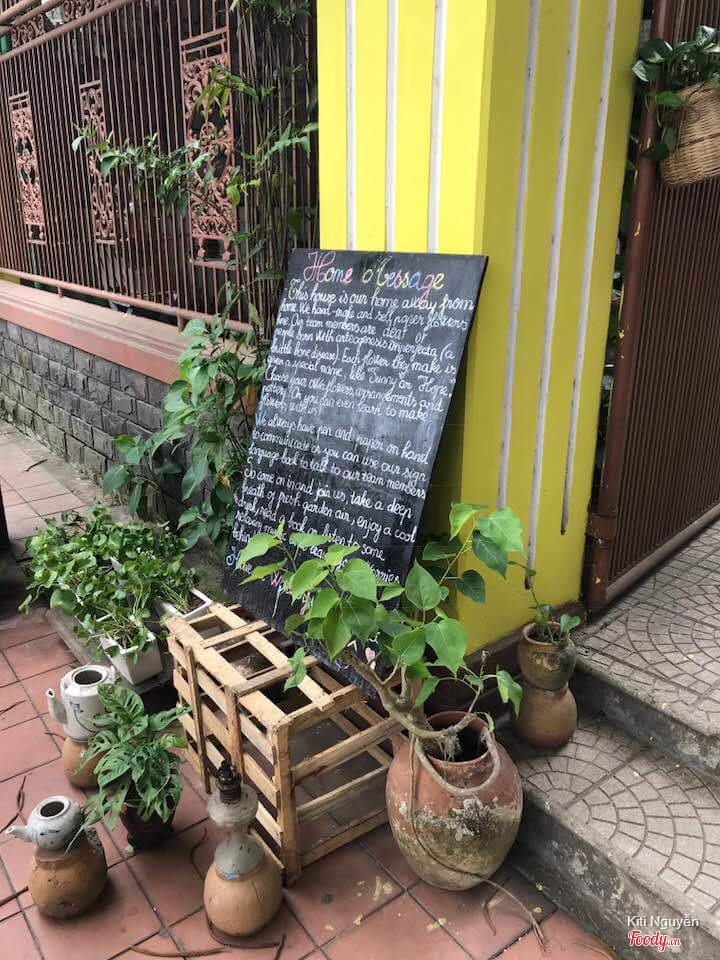 Home Message
This house is our home away from
home. We hand-make and sell paper flowers
here. Our team members are deaf or
people born with osteogenesis imperfecta (a
brittle bone disease). Each flower they make is
given a special name, like "Sunny" or "Hope."
Choose your own flowers, arrangements and
pottery! Or you can even learn to make
flowers with us!
We always have pen and paper on hand
to communicate or you can use our sign
language book to talk to our team members
So come on in and join us, take a deep
breath of fresh garden air, enjoy a cool
drink, read a book or listen to some
relaxing music
behind
Kiti Nguyễn
Foody.vn